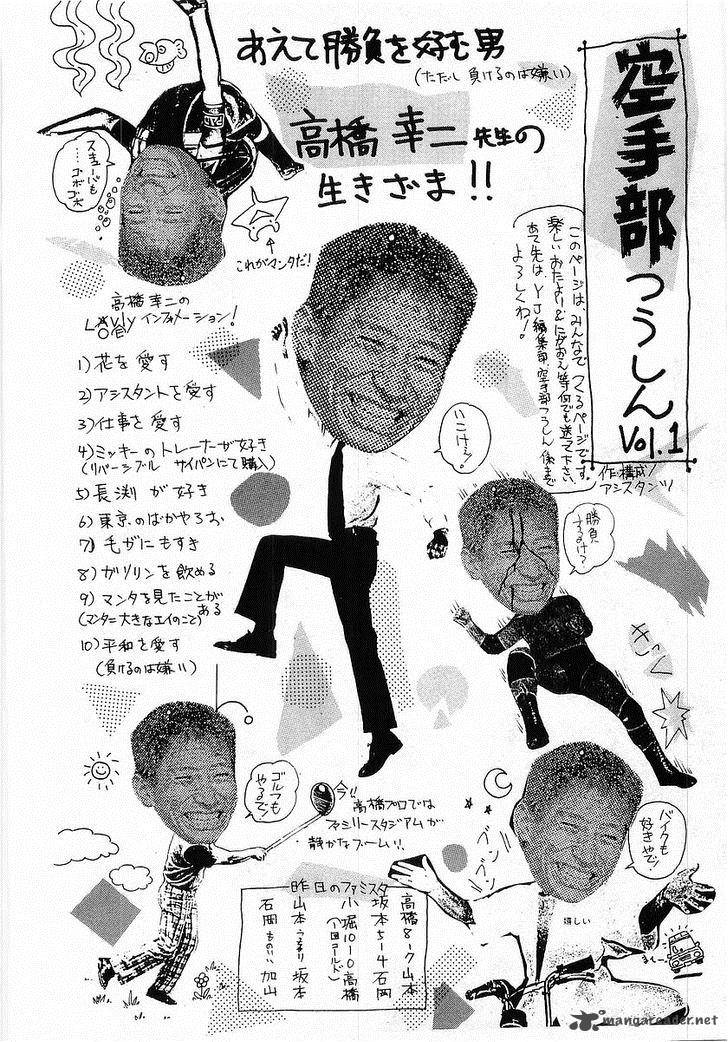 空手部つうしん Vol.1
作・構成/アシスタンツ
あえて勝負を好む男
(ただし負けるのは嫌い)
高橋幸二先生の
生きざま!!
このページは、みんなで つくるページです。
楽しいおたより&にがおえ等何でも送って下さい
あて先は YJ編集部 空手部つうしん係まで
よろしくね!
スキューバも
…ゴボゴボ
これがマンタだ!
高橋幸二の
インフォメーション!
1)花を愛す
2)アシスタントを愛す
3)仕事を愛す
4)ミッキーのトレーナーが好き
(リバーシブル サイパンにて購入)
5)長渕が好き
6)東京のばかやろお
7)毛がにもすき
8)ガソリンを飲める
9)マンタを見たことがある
(マンタ=大きなエイのこと)
10)平和を愛す
(負けるのは嫌い)
勝負
するけ?
ゴルフも
やるで!
今!!
高橋プロでは
ファミリースタジアムが
静かなブーム!!
バイクも
好きやで!
ブンブン
嬉しい
昨日のファミスタ
高橋8-7山本
坂本5-4石岡
小堀10-0高橋
(1回コールド)
山本 坂本
石岡 加山
mangareader.net